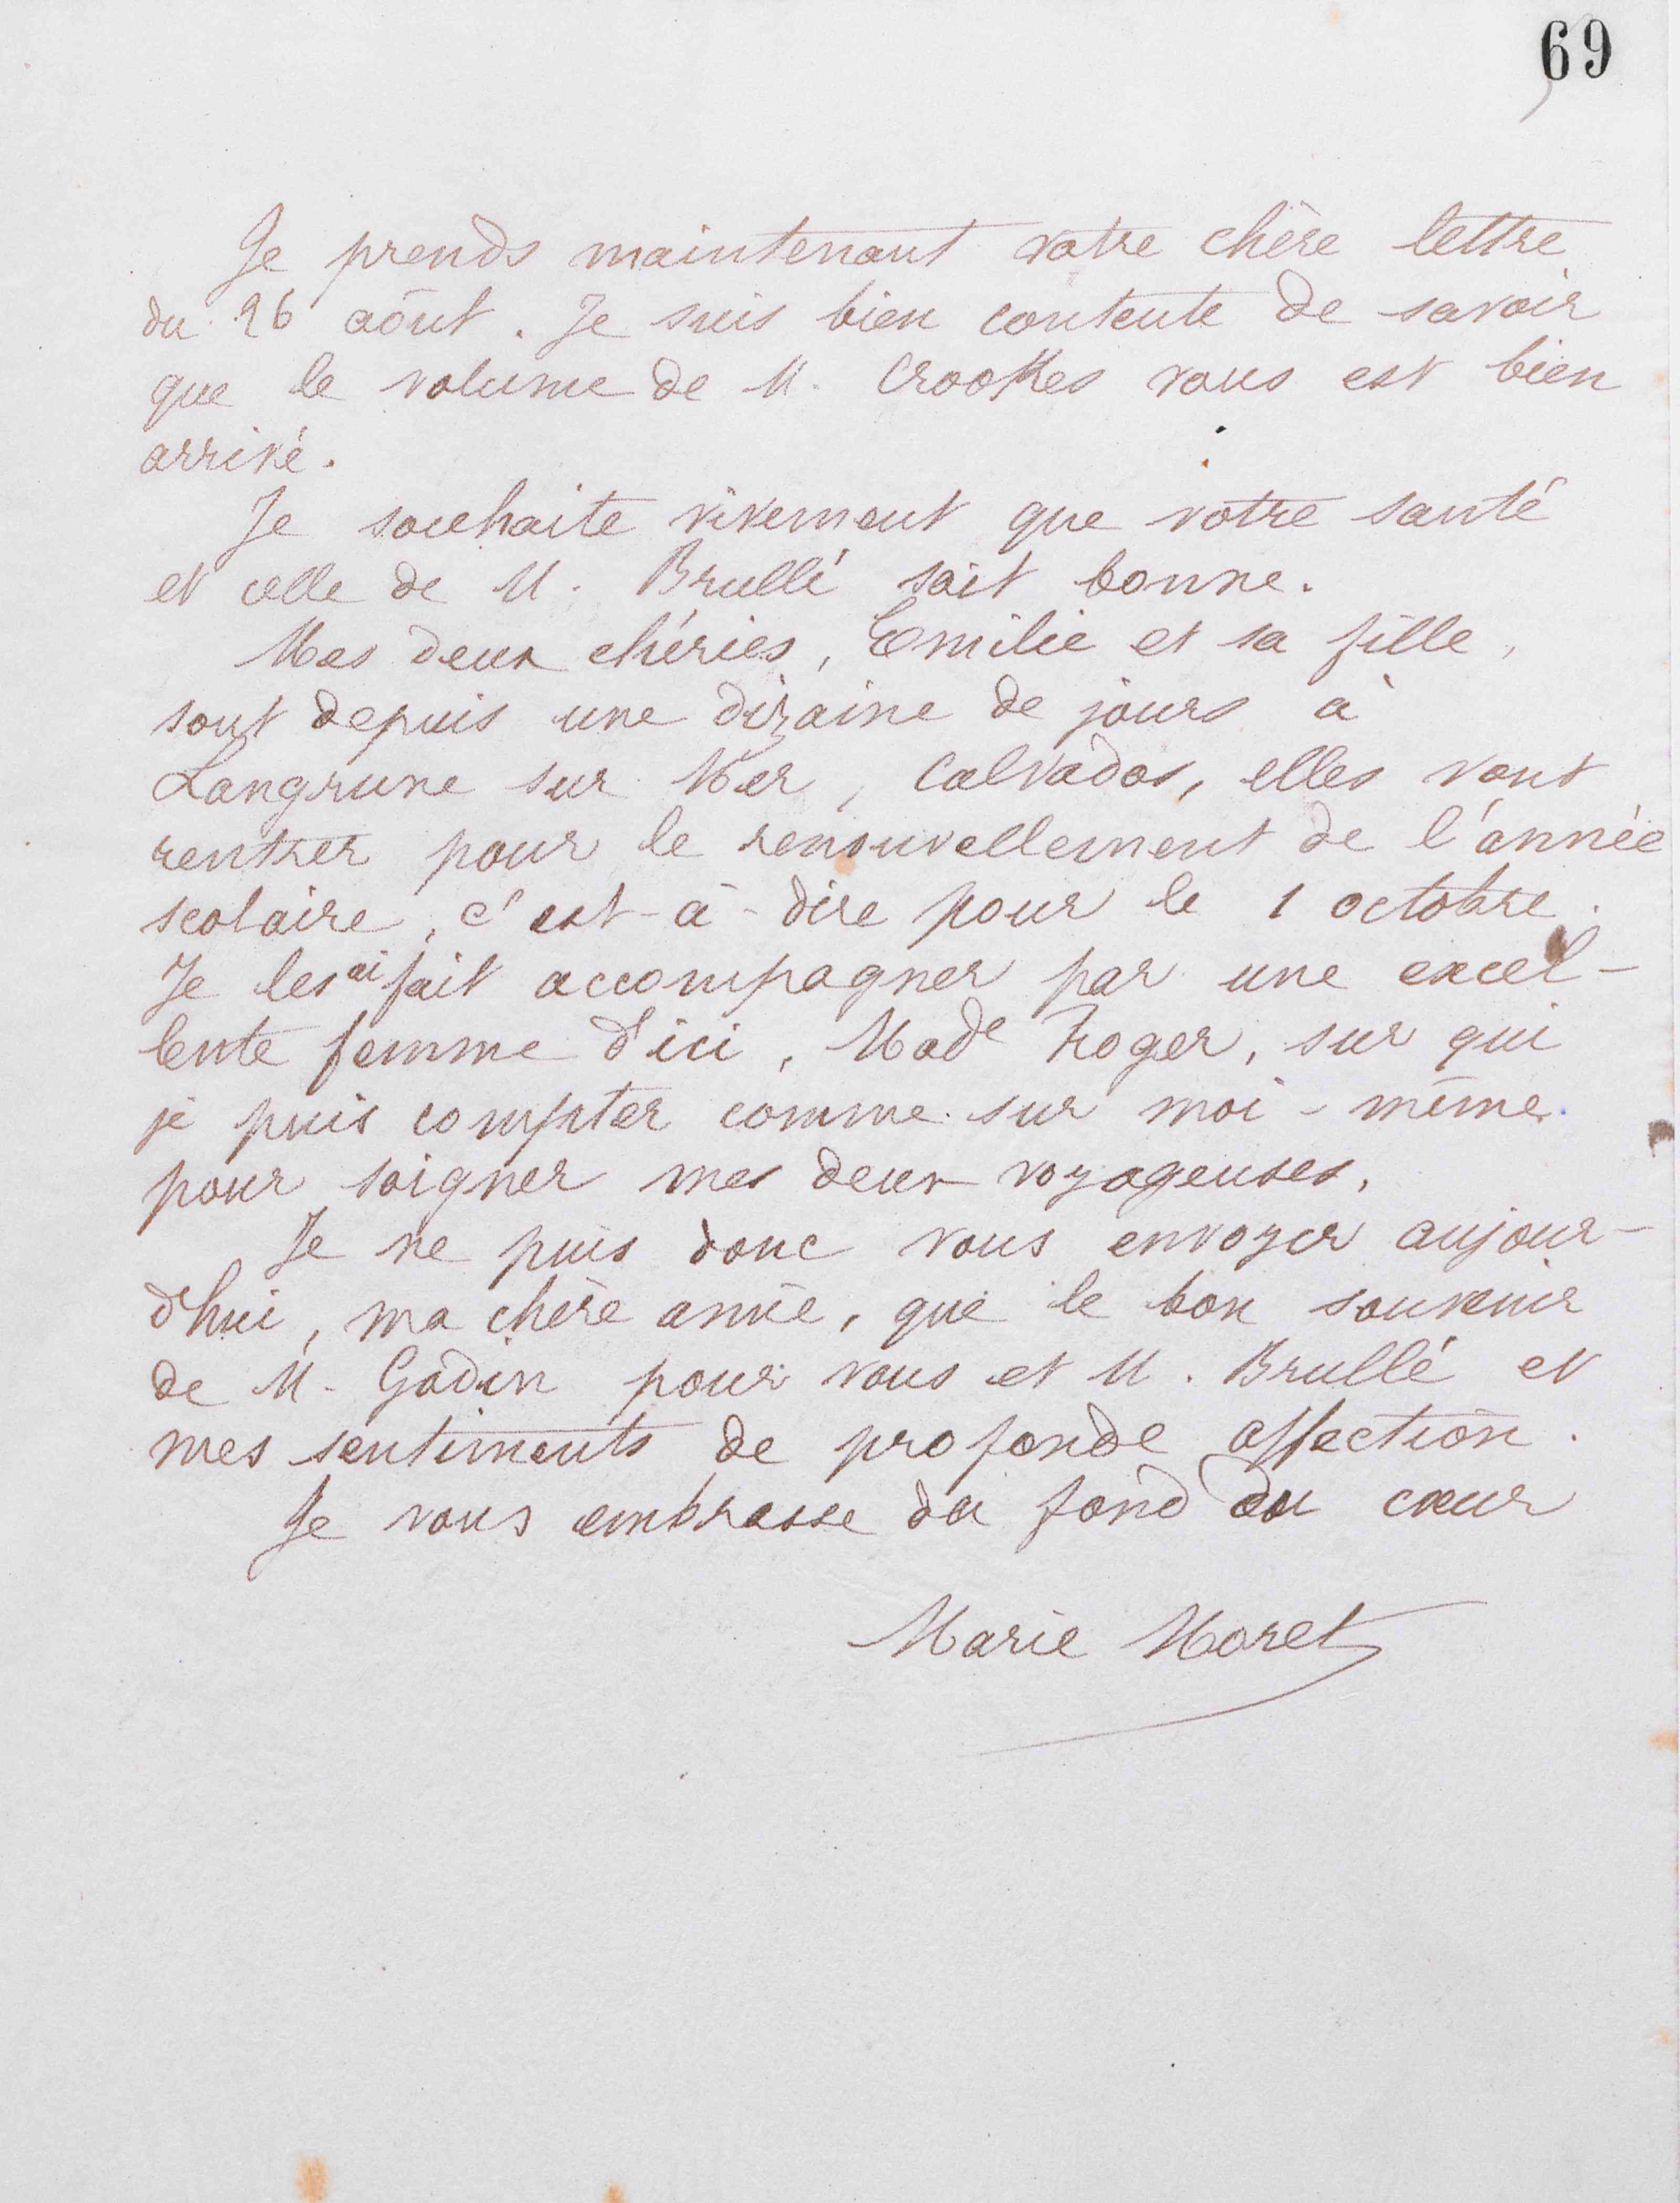 69
Je prends maintenant votre chère lettre
du 26 août. Je suis bien contente de savoir
que le volume de M. Crookes vous est bien
arrivé.
Je souhaite vivement que votre santé
et celle de M. Brullé soit bonne.
Mes deux chéries, Emilie et sa fille,
sont depuis une dizaine de jours à
Langrune sur Mer, Calvados, elles vont
rentrer pour le renouvellement de l'année
scolaire, c'est-à-dire pour le 1 octobre.
Je les ai fait accompagner par une excel-
lente femme d'ici, Made Froger, sur qui
je puis compter comme sur moi-même
pour soigner mes deux voyageuses.
Je ne puis donc vous envoyer aujour-
d'hui, ma chère amie, que le bon souvenir
de M. Godin pour vous et M. Brullé et
mes sentiments de profonde affection.
Je vous embrasse du fond du cœur
Marie Moret